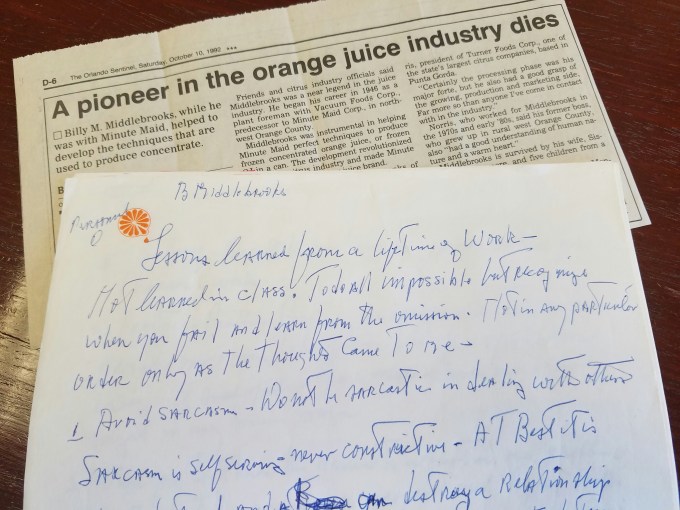 D-6 The Orlando Sentinel, Saturday, October 10, 1992 ***
A pioneer in the orange juice industry dies
□ Billy M. Middlebrooks, while he
was with Minute Maid, helped to
develop the techniques that are
used to produce concentrate.
Friends and citrus industry officials said
Middlebrooks was a near legend in the juice
industry. He began his career in 1946 as a
plant foreman with Vacuum Foods Corp.,
predecessor to Minute Maid Corp., in north-
west Orange County.
Middlebrooks was instrumental in helping
Minute Maid perfect techniques to produce
frozen concentrated orange juice, or froze
in a can. The development revolutionized
industry and made Minute
juice brand.
ris, president of Turner Foods Corp., one of
the state's largest citrus companies, based in
Punta Gorda.
"Certainly the processing phase was his
major forte, but he also had a good grasp of
the growing, production and marketing side.
Far more so than anyone I've come in contact
with in the industry."
Norris, who worked for Middlebrooks in
the 1970s and early '80s, said his former boss,
who grew up in rural west Orange County,
also "had a good understanding of human na-
ture and a warm heart."
Middlebrooks is survived by his wife,
and five children from a
B Middlebrooks
Personal
Lessons learned from a lifetime of Work -
Not learned in class. To do All impossible but recognize
when you fail and learn from the omission. Not in any particular
order only as the thoughts Came To me -
1 Avoid SARCASM - Do not be sarcastic in dealing with others
SARCASM is self serving - never constructive - AT Best it is
and can destroy a Relationship